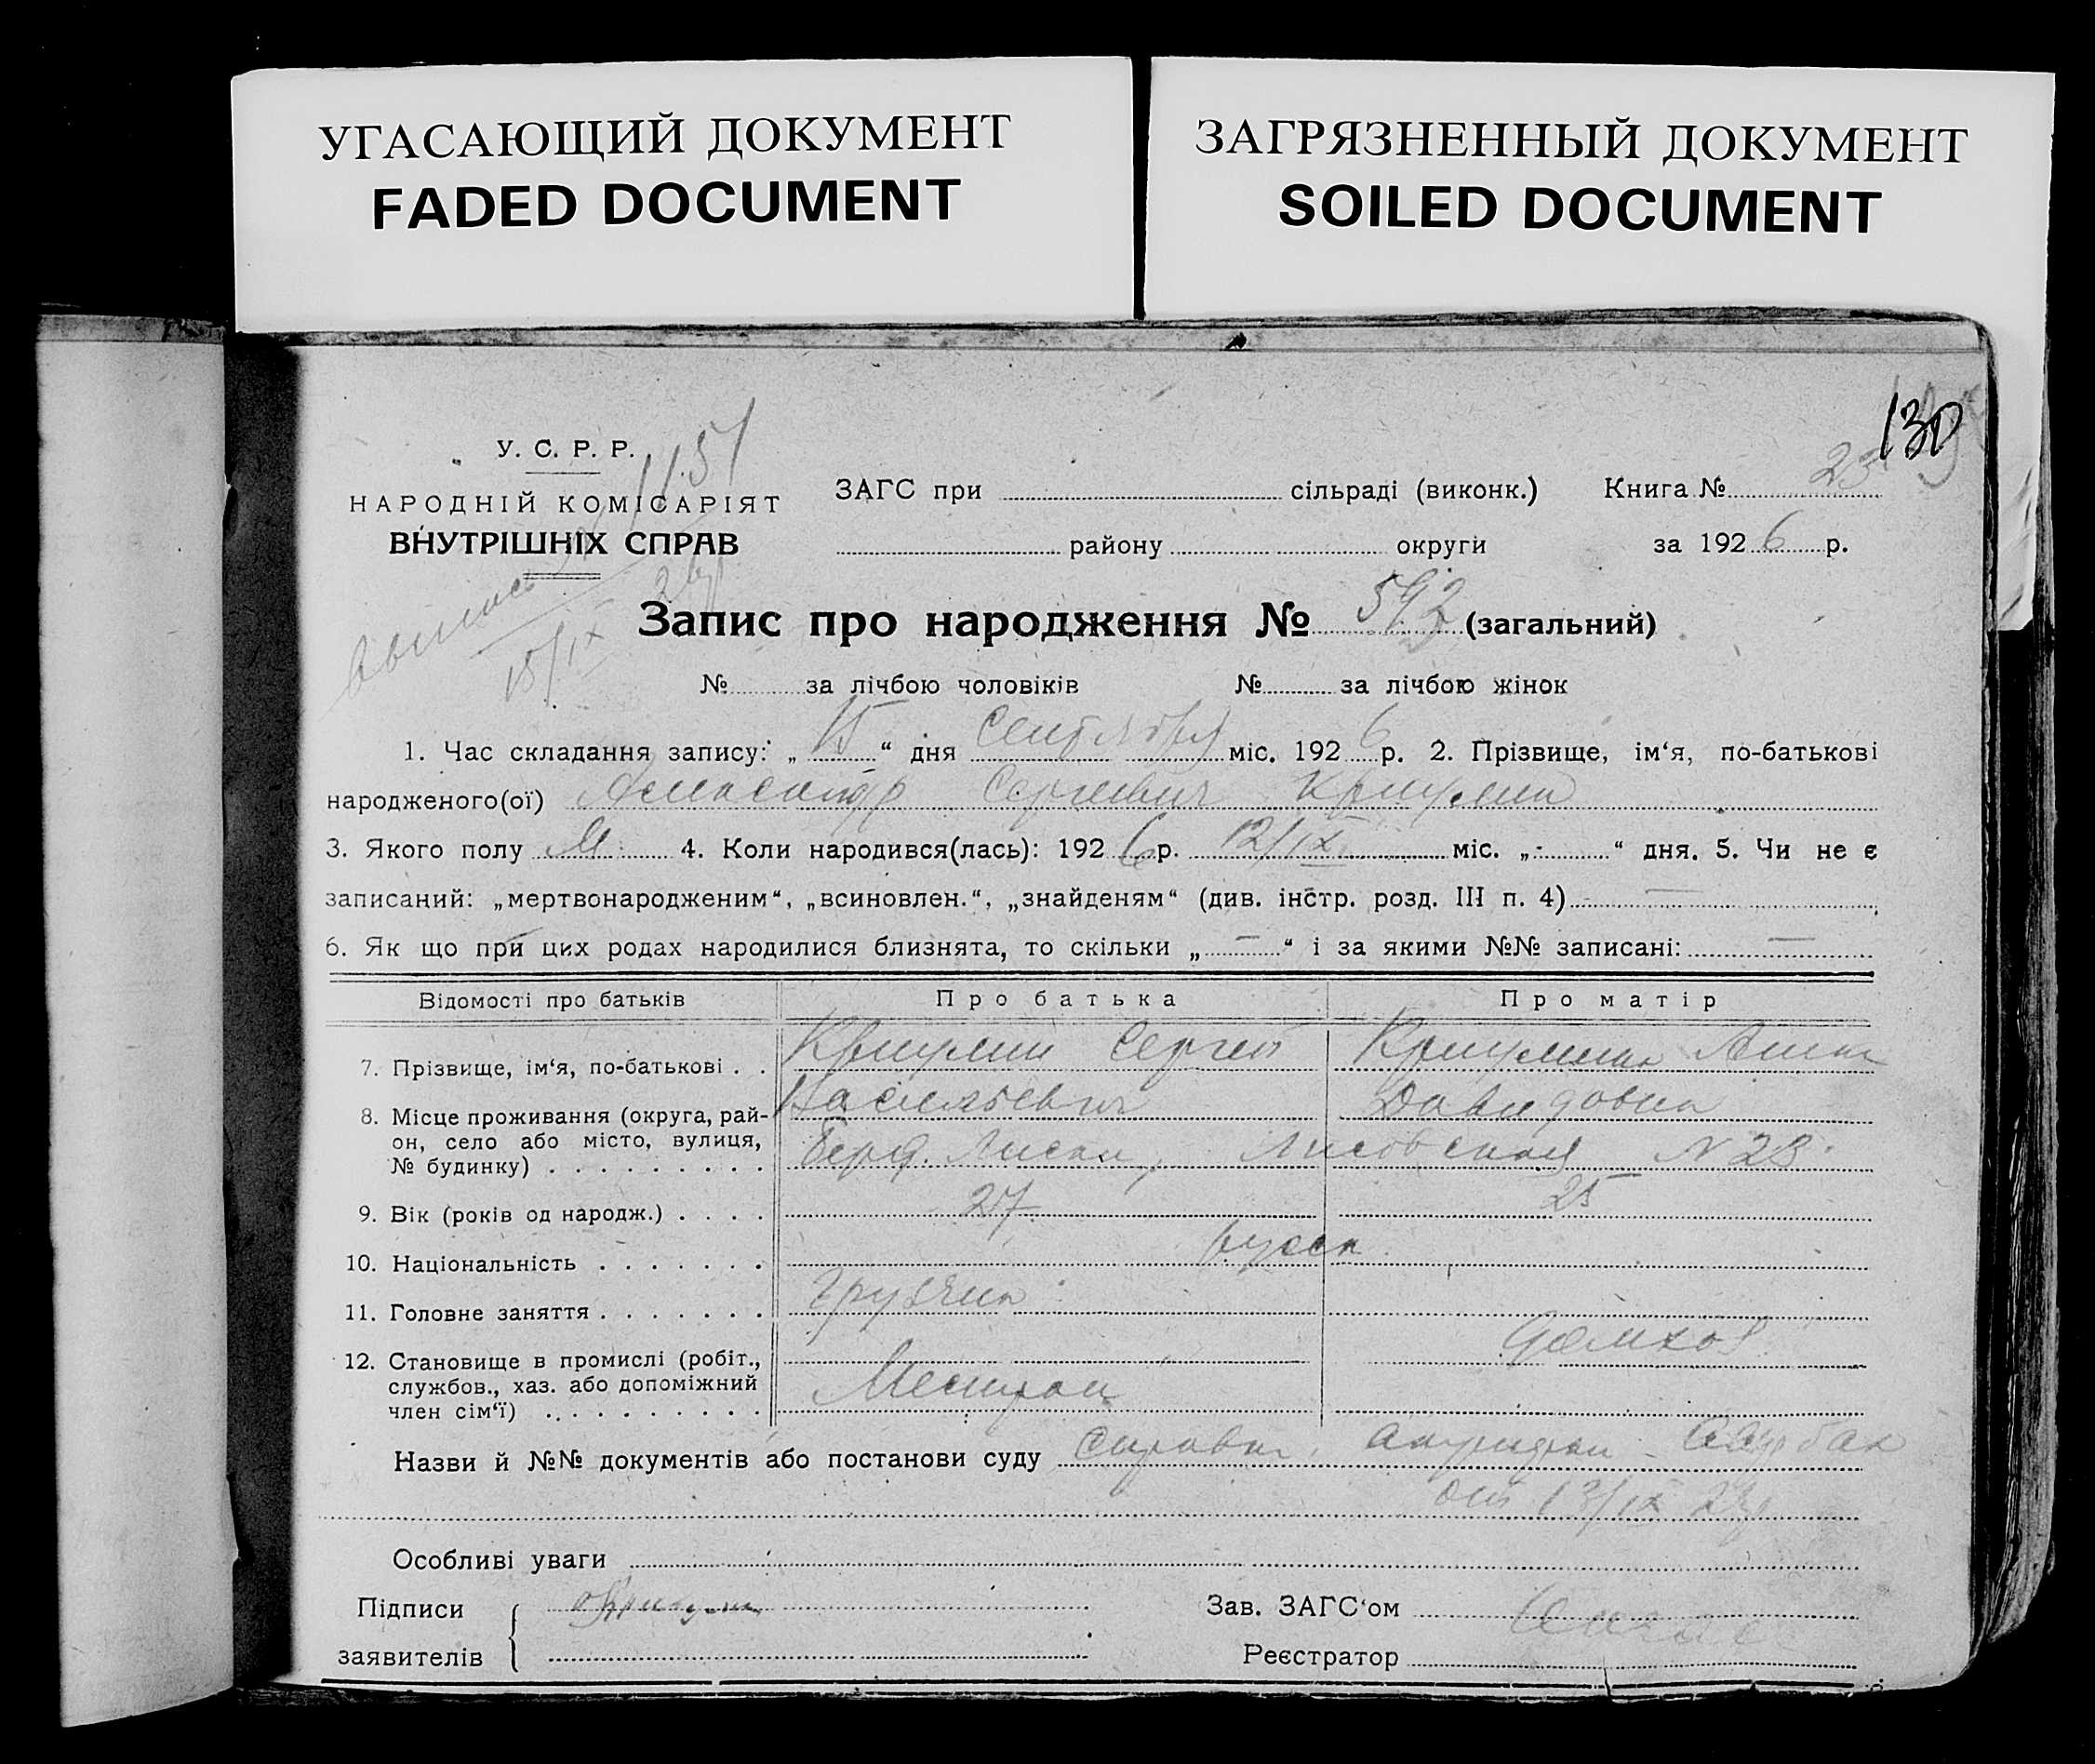 УГАСАЮЩИЙ ДОКУМЕНТ
FADED DOCUMENT
ЗАГРЯЗНЕННЫЙ ДОКУМЕНТ
SOILED DOCUMENT
130
1151
У. С. Р. Р.
НАРОДНІЙ КОМІСАРІЯТ
ВНУТРІШНІХ СПРАВ
ЗАГС при сільраді (виконк.) Книга № 23
району округи за 1926 р.
15/IX
Запис про народження № 592 (загальний)
№ за лічбою чоловіків № за лічбою жінок
1. Час складання запису: „15“ дня Сентября міс. 1926 р. 2. Прізвище, ім‘я, по-батькові
народженого(ої) Александр Сергеевич
3. Якого полу М 4. Коли народився(лась): 1926 р. 12/IX міс. „-“ дня. 5. Чи не є
записаний: „мертвонародженим“, „всиновлен.“, „знайденям“ (див. інстр. розд. III п. 4) —
6. Як що при цих родах народилися близнята, то скільки „—“ і за якими №№ записані: —
Відомості про батьків Про батька Про матір
7. Прізвище, ім‘я, по-батькові . . Сергей Анна
Васильевич Давидовна
8. Місце проживання (округа, рай-
он, село або місто, вулиця,
№ будинку) . . . . . . . . . Лисовская N 23
9. Вік (років од народж.) . . . . 27 25
10. Національність . . . . . . . русск
11. Головне заняття . . . . . . . грузчик
домхоз
12. Становище в промислі (робіт.,
службов., хаз. або допоміжний
член сім‘ї) . . . . . . . . . .
Назви й №№ документів або постанови суду справка
от 13/IX
Особливі уваги
Підписи
заявителів
Зав. ЗАГС‘ом
Реєстратор